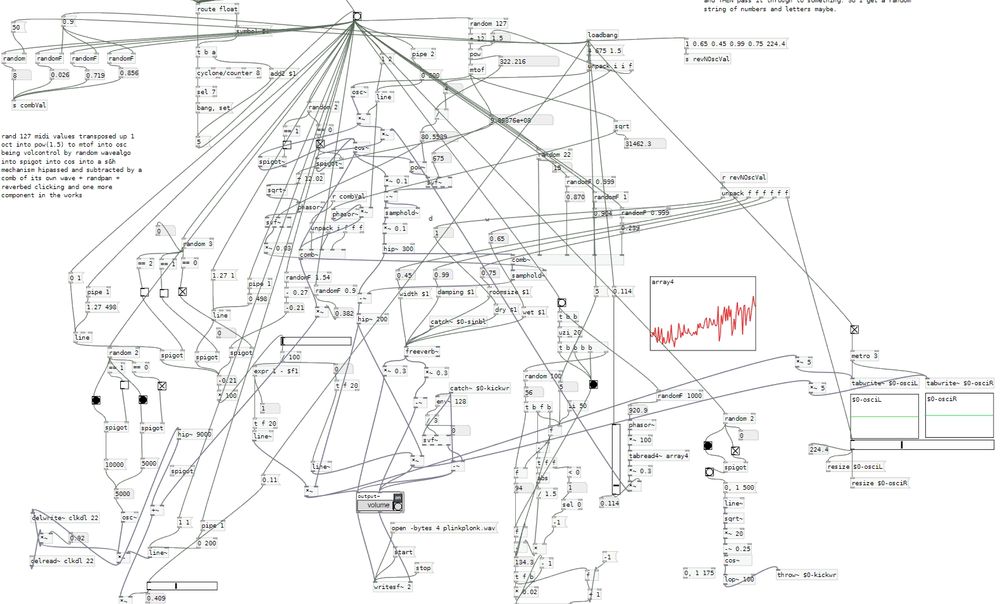 and THEN pass it through to something. So I get a random
string of numbers and letters maybe.
route float
symbol $1
50
0.9
random
randomF
randomF
randomF
8
0.026
0.719
0.856
s combVal
t b a
cyclone/counter 8
add2 $1
sel 7
bang, set
5
random 127
+ 12
1.5
pow
mtof
322.216
pipe 2
1 2
osc~
line
loadbang
4.675 1.5
unpack i i f
1 0.65 0.45 0.99 0.75 224.4
s revNOscVal
rand 127 midi values transposed up 1
oct into pow(1.5) to mtof into osc
being volcontrol by random wavealgo
into spigot into cos into a s&h
mechanism hipassed and subtracted by a
comb of its own wave + randpan +
reverbed clicking and one more
component in the works
random 2
== 1
== 0
spigot~
spigot~
cos~
80.5539
675
sqrt
31462.3
random 22
randomF 0.999
0.870
randomF 1
0.904
randomF 0.999
0.239
r revNOscVal
unpack f f f f f f
sqrt~
phasor~
r combVal
phasor~
unpack i f f f
*~ 0.1
samphold~
*~ 0.1
hip~ 300
comb~
d
w
1
0.65
comb~
samphold~
0
random 3
== 2
== 1
== 0
0 1
pipe 1
1.27 498
line
1.27 1
pipe 1
0 498
line
0
randomF 1.54
- 0.27
0.21
randomF 0.9
0.382
hip~ 200
0.45
0.99
0.75
width $1
damping $1
roomsize $1
dry $1
wet $1
catch~ $0-sinbl
freeverb~
*~ 0.3
*~ 0.3
5
0.114
array4
t b b
uzi 20
t b b b b
random 2
== 1
== 0
spigot
spigot
spigot
spigot
spigot
10000
5000
5000
osc~
-0.21
* 100
/ 100
expr 1 - $f1
0
t f 20
1
t f 20
line~
line~
0.11
hip~ 9000
spigot
catch~ $0-kickwr
env~ 128
3
0
svf~
random 100
56
t b f b
5
f
f
94
t f f
abs
1.5
< 0
1
sel 0
-1
134.3
- 1
t f b
* 0.02
-1
f
+ 1
randomF 1000
920.9
phasor~
*~ 100
tabread4~ array4
*~ 0.3
0.114
random 2
0
spigot
0, 1 500
line~
sqrt~
*~ 20
-~ 0.25
cos~
lop~ 100
0, 1 175
throw~ $0-kickwr
metro 3
*~ 5
*~ 5
tabwrite~ $0-osciL
tabwrite~ $0-osciR
$0-osciL
$0-osciR
224.4
resize $0-osciL
resize $0-osciR
output~
volume
open -bytes 4 plinkplonk.wav
start
stop
writesf~ 2
delwrite~ clkdl 22
*~
0.92
delread~ clkdl 22
1 1
pipe 1
0 200
line~
0.409